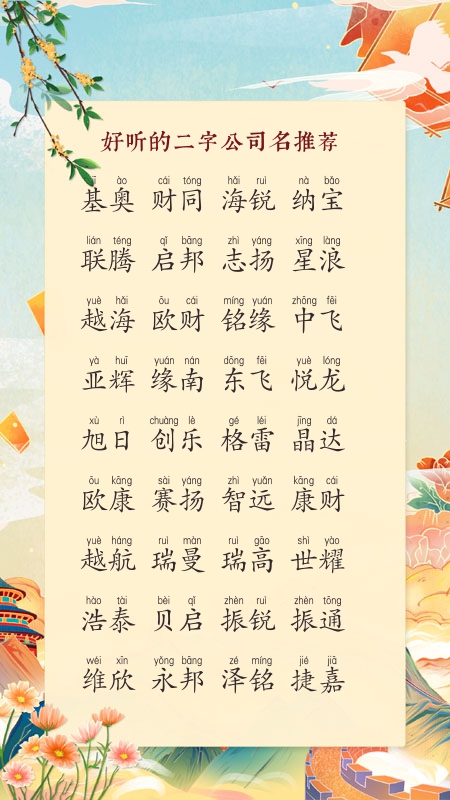 好听的二字公司名推荐
jī ào cái tóng hǎi ruì nà bǎo
基奥 财同 海锐 纳宝
lián téng qǐ bāng zhì yáng xīng làng
联腾 启邦 志扬 星浪
yuè hǎi ōu cái míng yuán zhōng fēi
越海 欧财 铭缘 中飞
yà huī yuán nán dōng fēi yuè lóng
亚辉 缘南 东飞 悦龙
xù rì chuàng lè gé léi jīng dá
旭日 创乐 格雷 晶达
ōu kāng sài yáng zhì yuǎn kāng cái
欧康 赛扬 智远 康财
yuè háng ruì màn ruì gāo shì yào
越航 瑞曼 瑞高 世耀
hào tài bèi qǐ zhèn ruì zhèn tōng
浩泰 贝启 振锐 振通
wéi xīn yǒng bāng zé míng jié jiā
维欣 永邦 泽铭 捷嘉